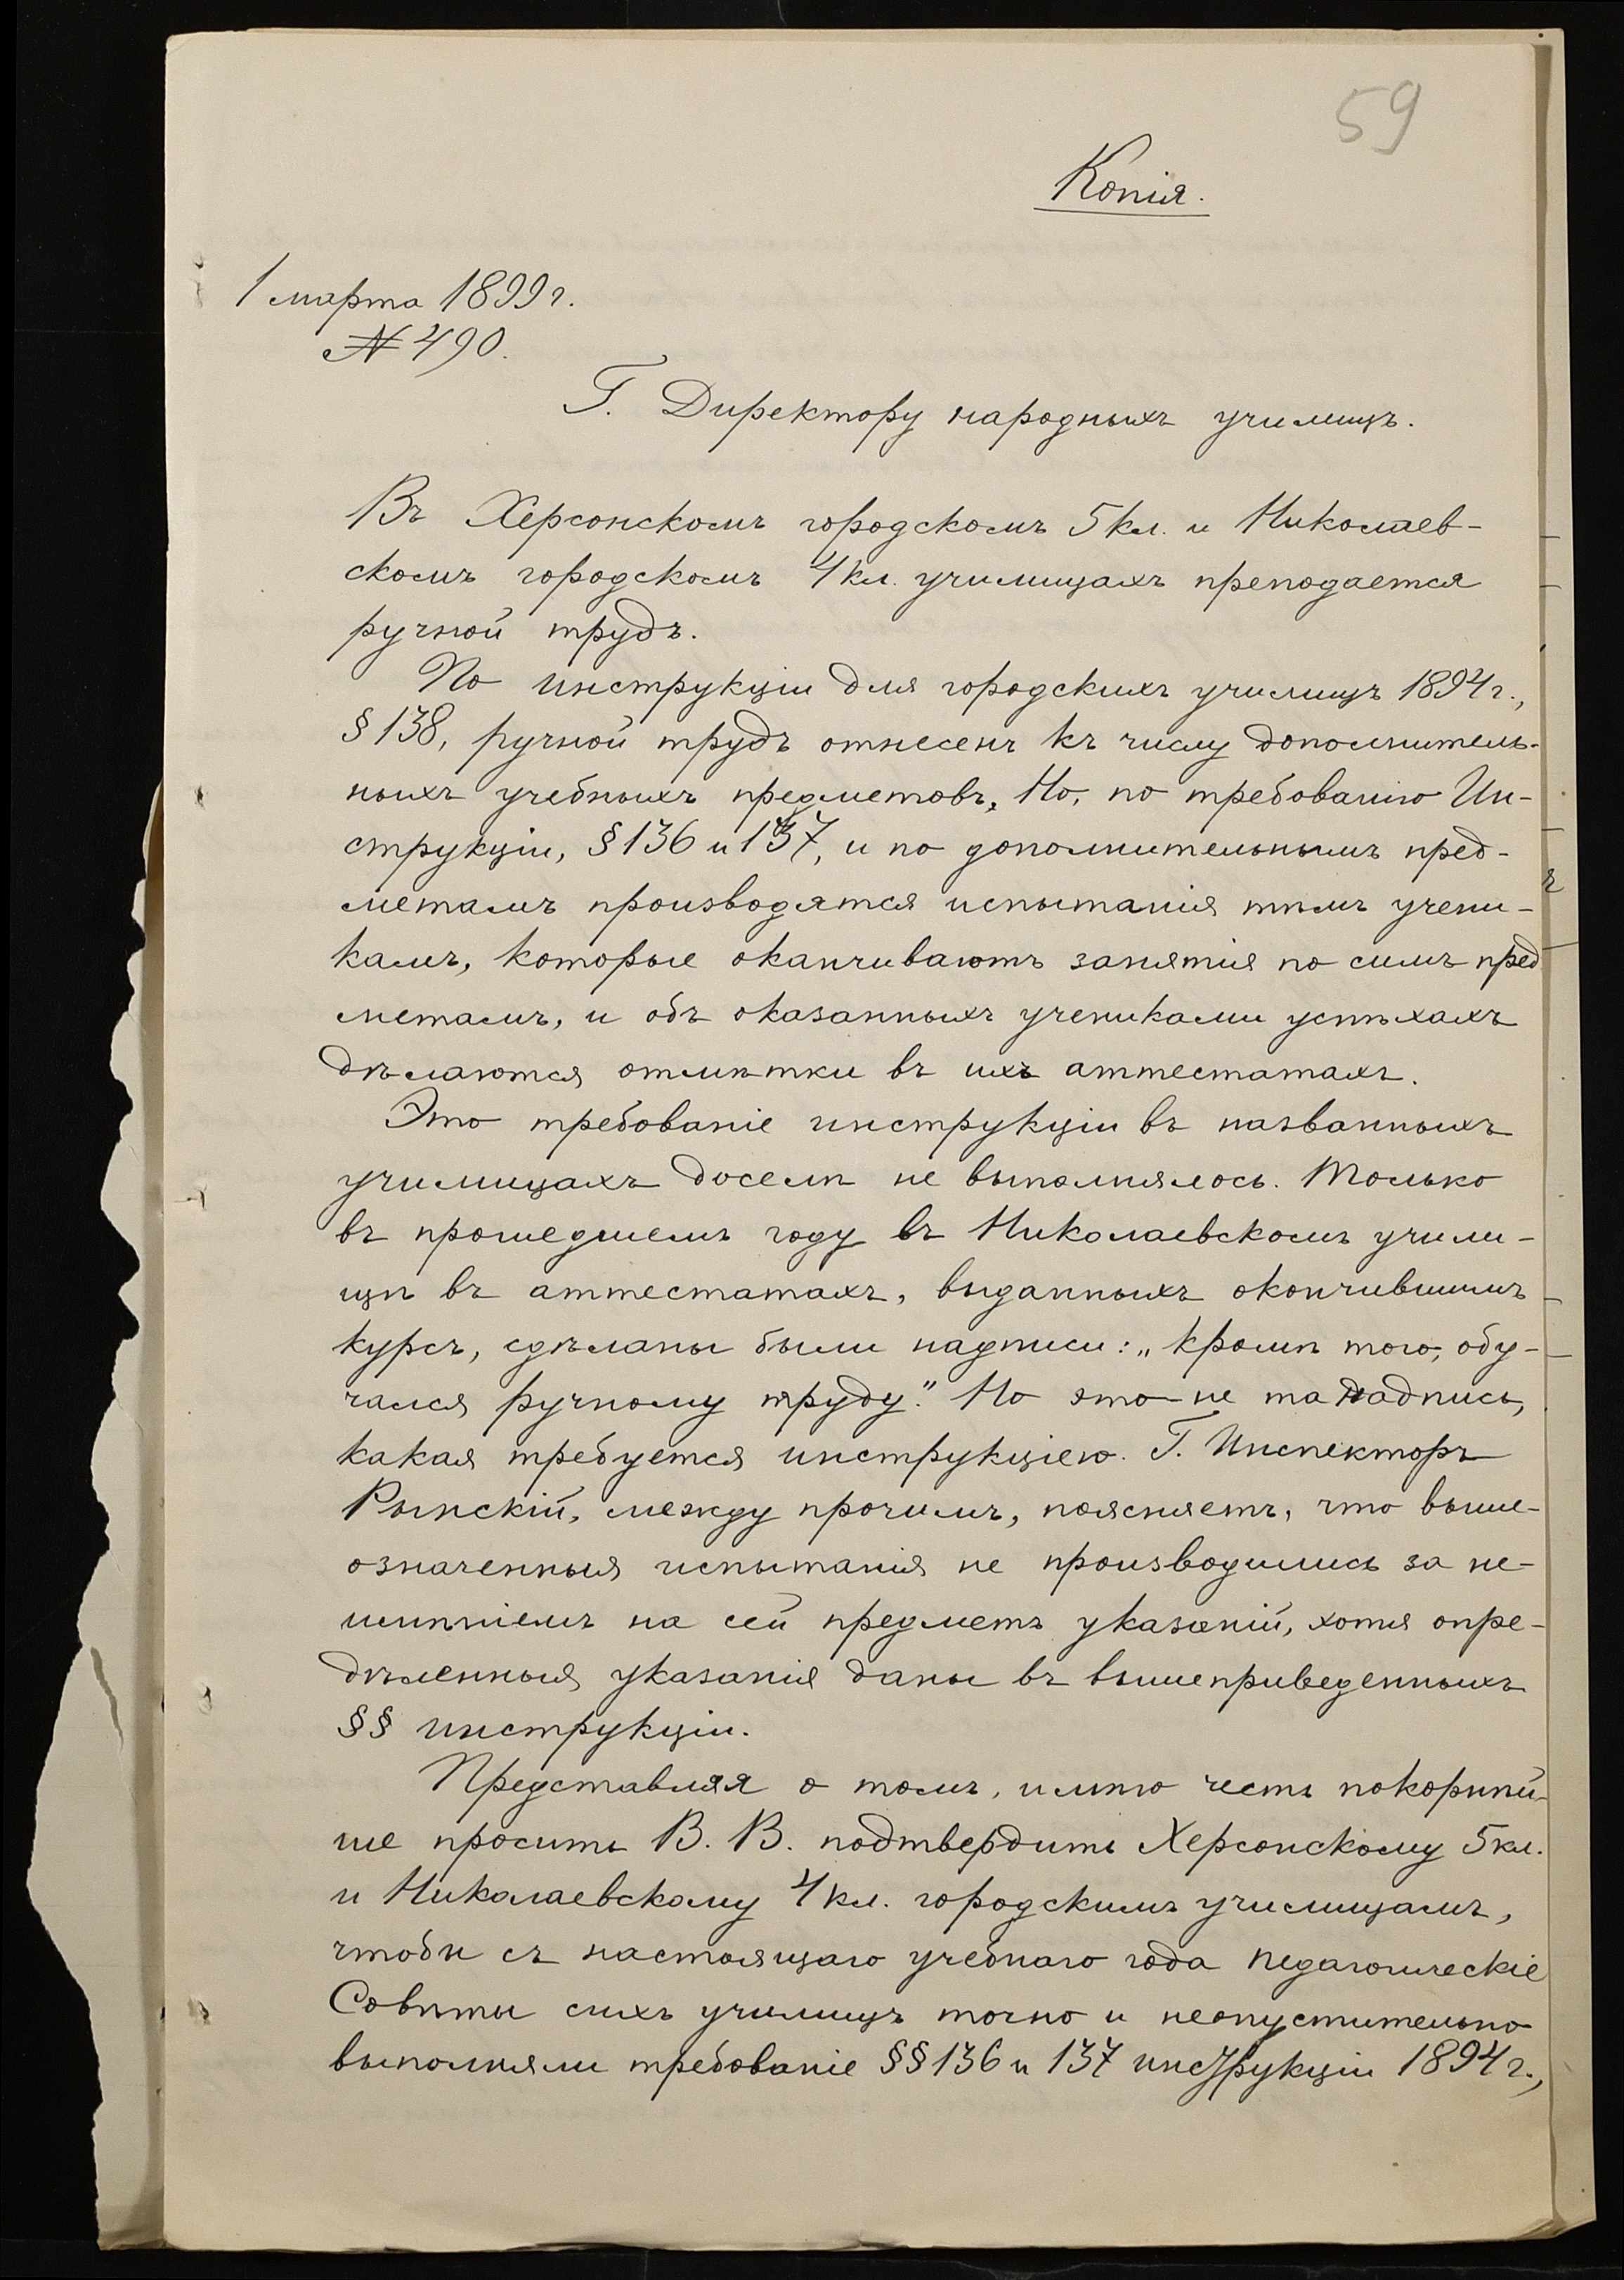 59
Копія.
1 марта 1899 г.
№ 490.
Г. Директору народныхъ училищъ.
Въ Херсонскомъ городскомъ 5 кл. и Николаев-
скомъ городскомъ 4 кл. училищахъ преподается
ручной трудъ.
По инструкціи для городскихъ училищъ 1894 г.,
§ 138, ручной трудъ отнесенъ къ числу дополнитель-
ныхъ учебныхъ предметовъ. Но, по требованію Ин-
струкціи, § 136 и 137, и по дополнительнымъ пред-
метамъ производятся испытанія тѣмъ учени-
камъ, которые оканчиваютъ занятія по симъ пред
метамъ, и объ оказанныхъ учениками успѣхахъ
дѣлаются отмѣтки въ ихъ аттестатахъ.
Это требованіе инструкціи въ названныхъ
училищахъ доселѣ не выполнялось. Только
въ прошедшемъ году въ Николаевскомъ учили-
щѣ въ аттестатахъ, выданныхъ окончившимъ
курсъ, сдѣланы были надписи: „кромѣ того, обу-
чался ручному труду." Но это не та надпись,
какая требуется инструкціею. Г. Инспекторъ
Рыпскій, между прочимъ, поясняетъ, что выше-
означенныя испытанія не производились за не-
имѣніемъ на сей предметъ указаній, хотя опре-
дѣленныя указанія даны въ вышеприведенныхъ
§§ инструкціи.
Представляя о томъ, имѣю честь покорнѣй-
ше просить В. В. подтвердить Херсонскому 5 кл.
и Николаевскому 4 кл. городскимъ училищамъ,
чтобы съ настоящаго учебнаго года педагогическіе
Совѣты сихъ училищъ точно и неопустительно
выполняли требованіе §§ 136 и 137 инструкціи 1894 г.,